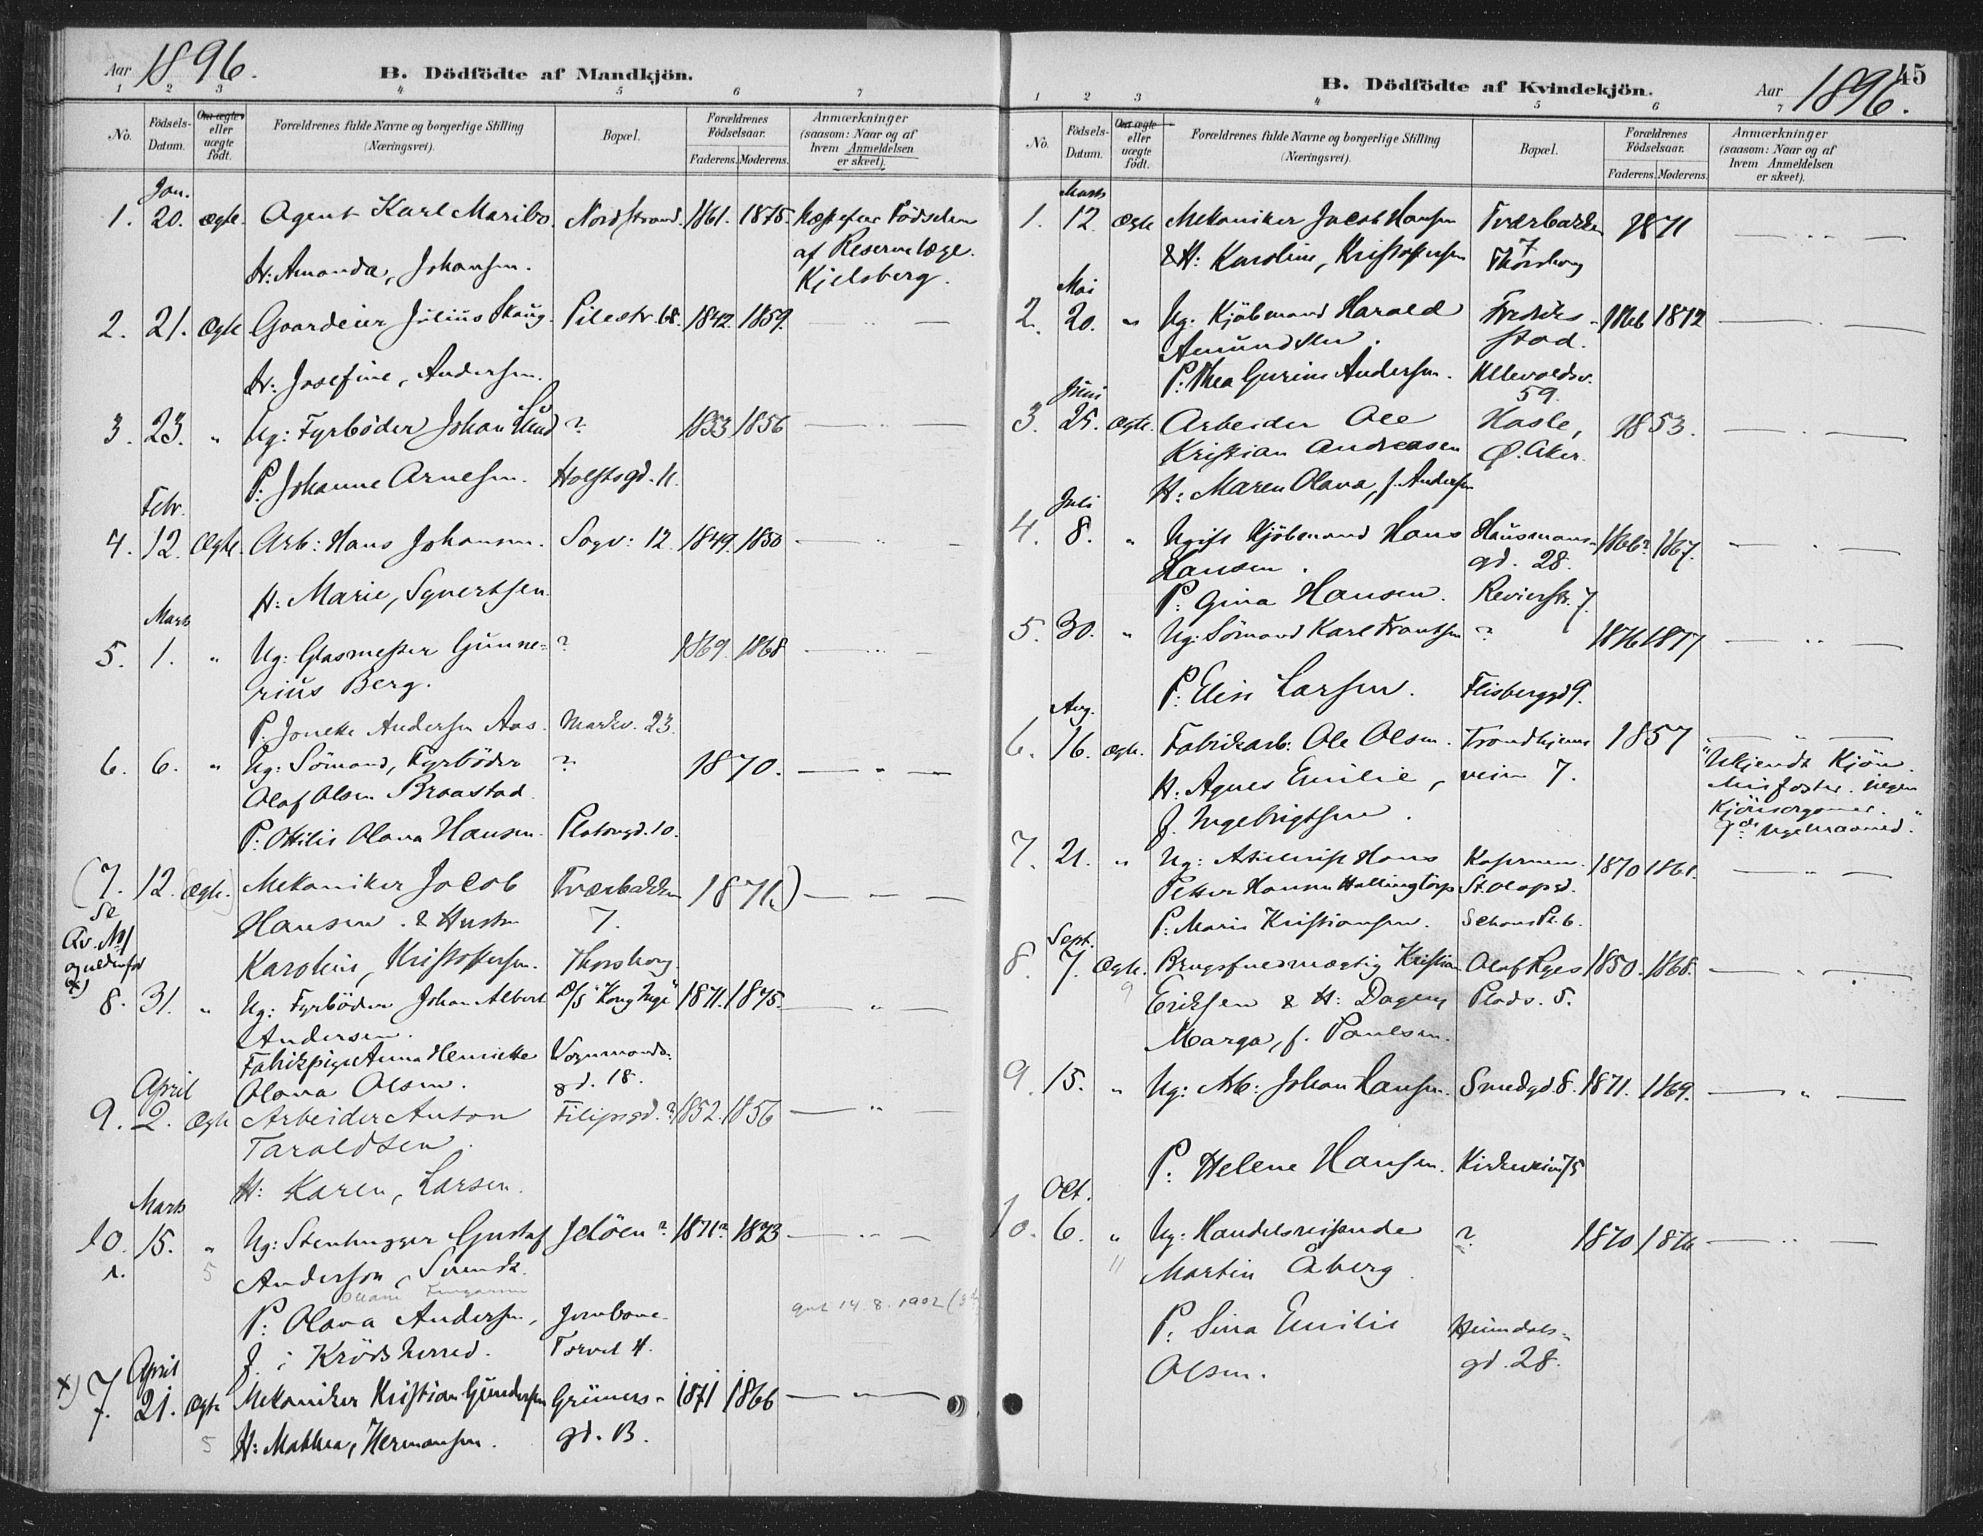 Aar 1896.
B. Dödfödte af Mandkjön.
1 2 3 4 5 6 7
No. Födsels-Datum. Om ægte eller uægte født. Forældrenes fulde Navne og borgerlige Stilling (Næringsvei). Bopæl. Forældrenes Födselsaar. Faderens. Moderens. Anmærkninger (saasom: Naar og af hvem Anmeldelsen er skeet).
Jan.
1. 20. ægte. Agent Karl Maribo. Nordstrand. 1861. 1875. Næst efter Födselen
H: Amanda, Johansen. af Reservelæge.
Kjelsberg.
2. 21. Ægte Gaardeier Julius Skaug. Pilestr. 68. 1842. 1859.
H: Josefine, Andersen.
3. 23. " Ug: Fyrböder Johan Lund ? 1853 1856
P: Johanne Arnesen. Holstsgd. 11.
Febr.
4. 12. Ægte. Arb: Hans Johansen. Sagv: 12. 1849. 1850
H: Marie, Syvertsen.
Marts
5. 1. " Ug: Glasmester Gunne- ? 1869. 1868
rius Berg.
P. Andersen Aas. Markv. 23.
6. 6. " Ug: Sömand, Fyrböder ? 1870.
Olaf Olsen Braastad.
P: Ottilie Olava Hansen. Platousgd. 10.
(7. 12. Ægte.) Mekaniker Jacob Tværbakken 1871.)
Se Hansen. & Hustru 7.
Kv. No 1
og nedenfor Karoline, Kristoffersen. Thorshaug.
x)
8. 31. " Ug: Fyrböder Johan Albert D/S "Kong Inge" 1871. 1875.
Andersen.
Fabrikpige Anna Henriette Vognmands-
Olava Olsen. gd. 18.
April
9. 2. Ægte Arbeider Anton Filipsgd. 1852. 1856
Taraldsen.
H: Karen, Larsen.
Marts
10. 15. " Ug: Stenhugger Gustaf Jelöen? 1871? 1873
5 Anderson, Svensk.
P: Olava Andersen, Jernbane- gift 14.8.1902
f. i Krödsherred. Torvet 4.
April
x) 7. 21. Ægte Mekaniker Kristian Gundersen Grüners- 1871 1866
5 H: Mathea, Hermansen. gd. B.
45
B. Dödfödte af Kvindekjön.
Aar 1896.
1 2 3 4 5 6 7
No. Födsels-Datum. Om ægte eller uægte födt. Forældrenes fulde Navne og borgerlige Stilling (Næringsvei). Bopæl. Forældrenes Födselsaar. Faderens. Moderens. Anmærkninger (saasom: Naar og af hvem Anmeldelsen er skeet).
Marts
1. 12. Ægte Mekaniker Jacob Hansen Tværbakken 1871
& H: Karoline, Kristoffersen 7 Thorshaug
Mai
2. 20. " Ug: Kjöbmand Harald Fredriks- 1872
Amundsen. stad.
P: Thea Gurine Andersen. Ullevoldsv. 59.
Juni
3. 25. Ægte. Arbeider Ole Hasle, 1853.
Kristian Andreasen Ö. Aker.
H: Maren Olava, f. Andersen
Juli
4. 8. " Ugift Kjöbmand Hans Hausmans- 1866? 1867.
Hansen. gd. 28.
P: Gina Hansen. Revierstr. 7.
5. 30. " Ug: Sömand Karl Frantsen ? 1876 1877
P: Elise Larsen. Flisberggd 9.
Aug.
6. 16. ægte. Fabrikarb: Ole Olsen. Trondhjems- 1857
H: Agnes Emilie, veien 7. "Ukjendt Kjön.
f. Ingebrigtsen. Misfoster. ingen
Kjönsorganer.
7. 21. " Ug: Hans Kasernen. 1870 1861.
Petter Hansen Hallingtorp St. Olafsgd.
P. Marie Kristiansen. Schous Pl. 6.
Sept.
8. 7. Ægte. Brugsfuldmægtig Kristian Olaf Ryes 1850. 1868.
9 Eriksen & H: Dagny Plads. 5.
Marga, f. Paulsen.
9. 15. " Ug: Arb: Johan Hansen. Smedgd 8. 1871. 1869.
P: Helene Hansen. Kirkeveien 75
Oct.
10. 6. " Ug: Handelsreisende ? 1870 1876
11 Martin Åberg.
P: Sina Emilie Heimdals-
Olsen. gd. 28.